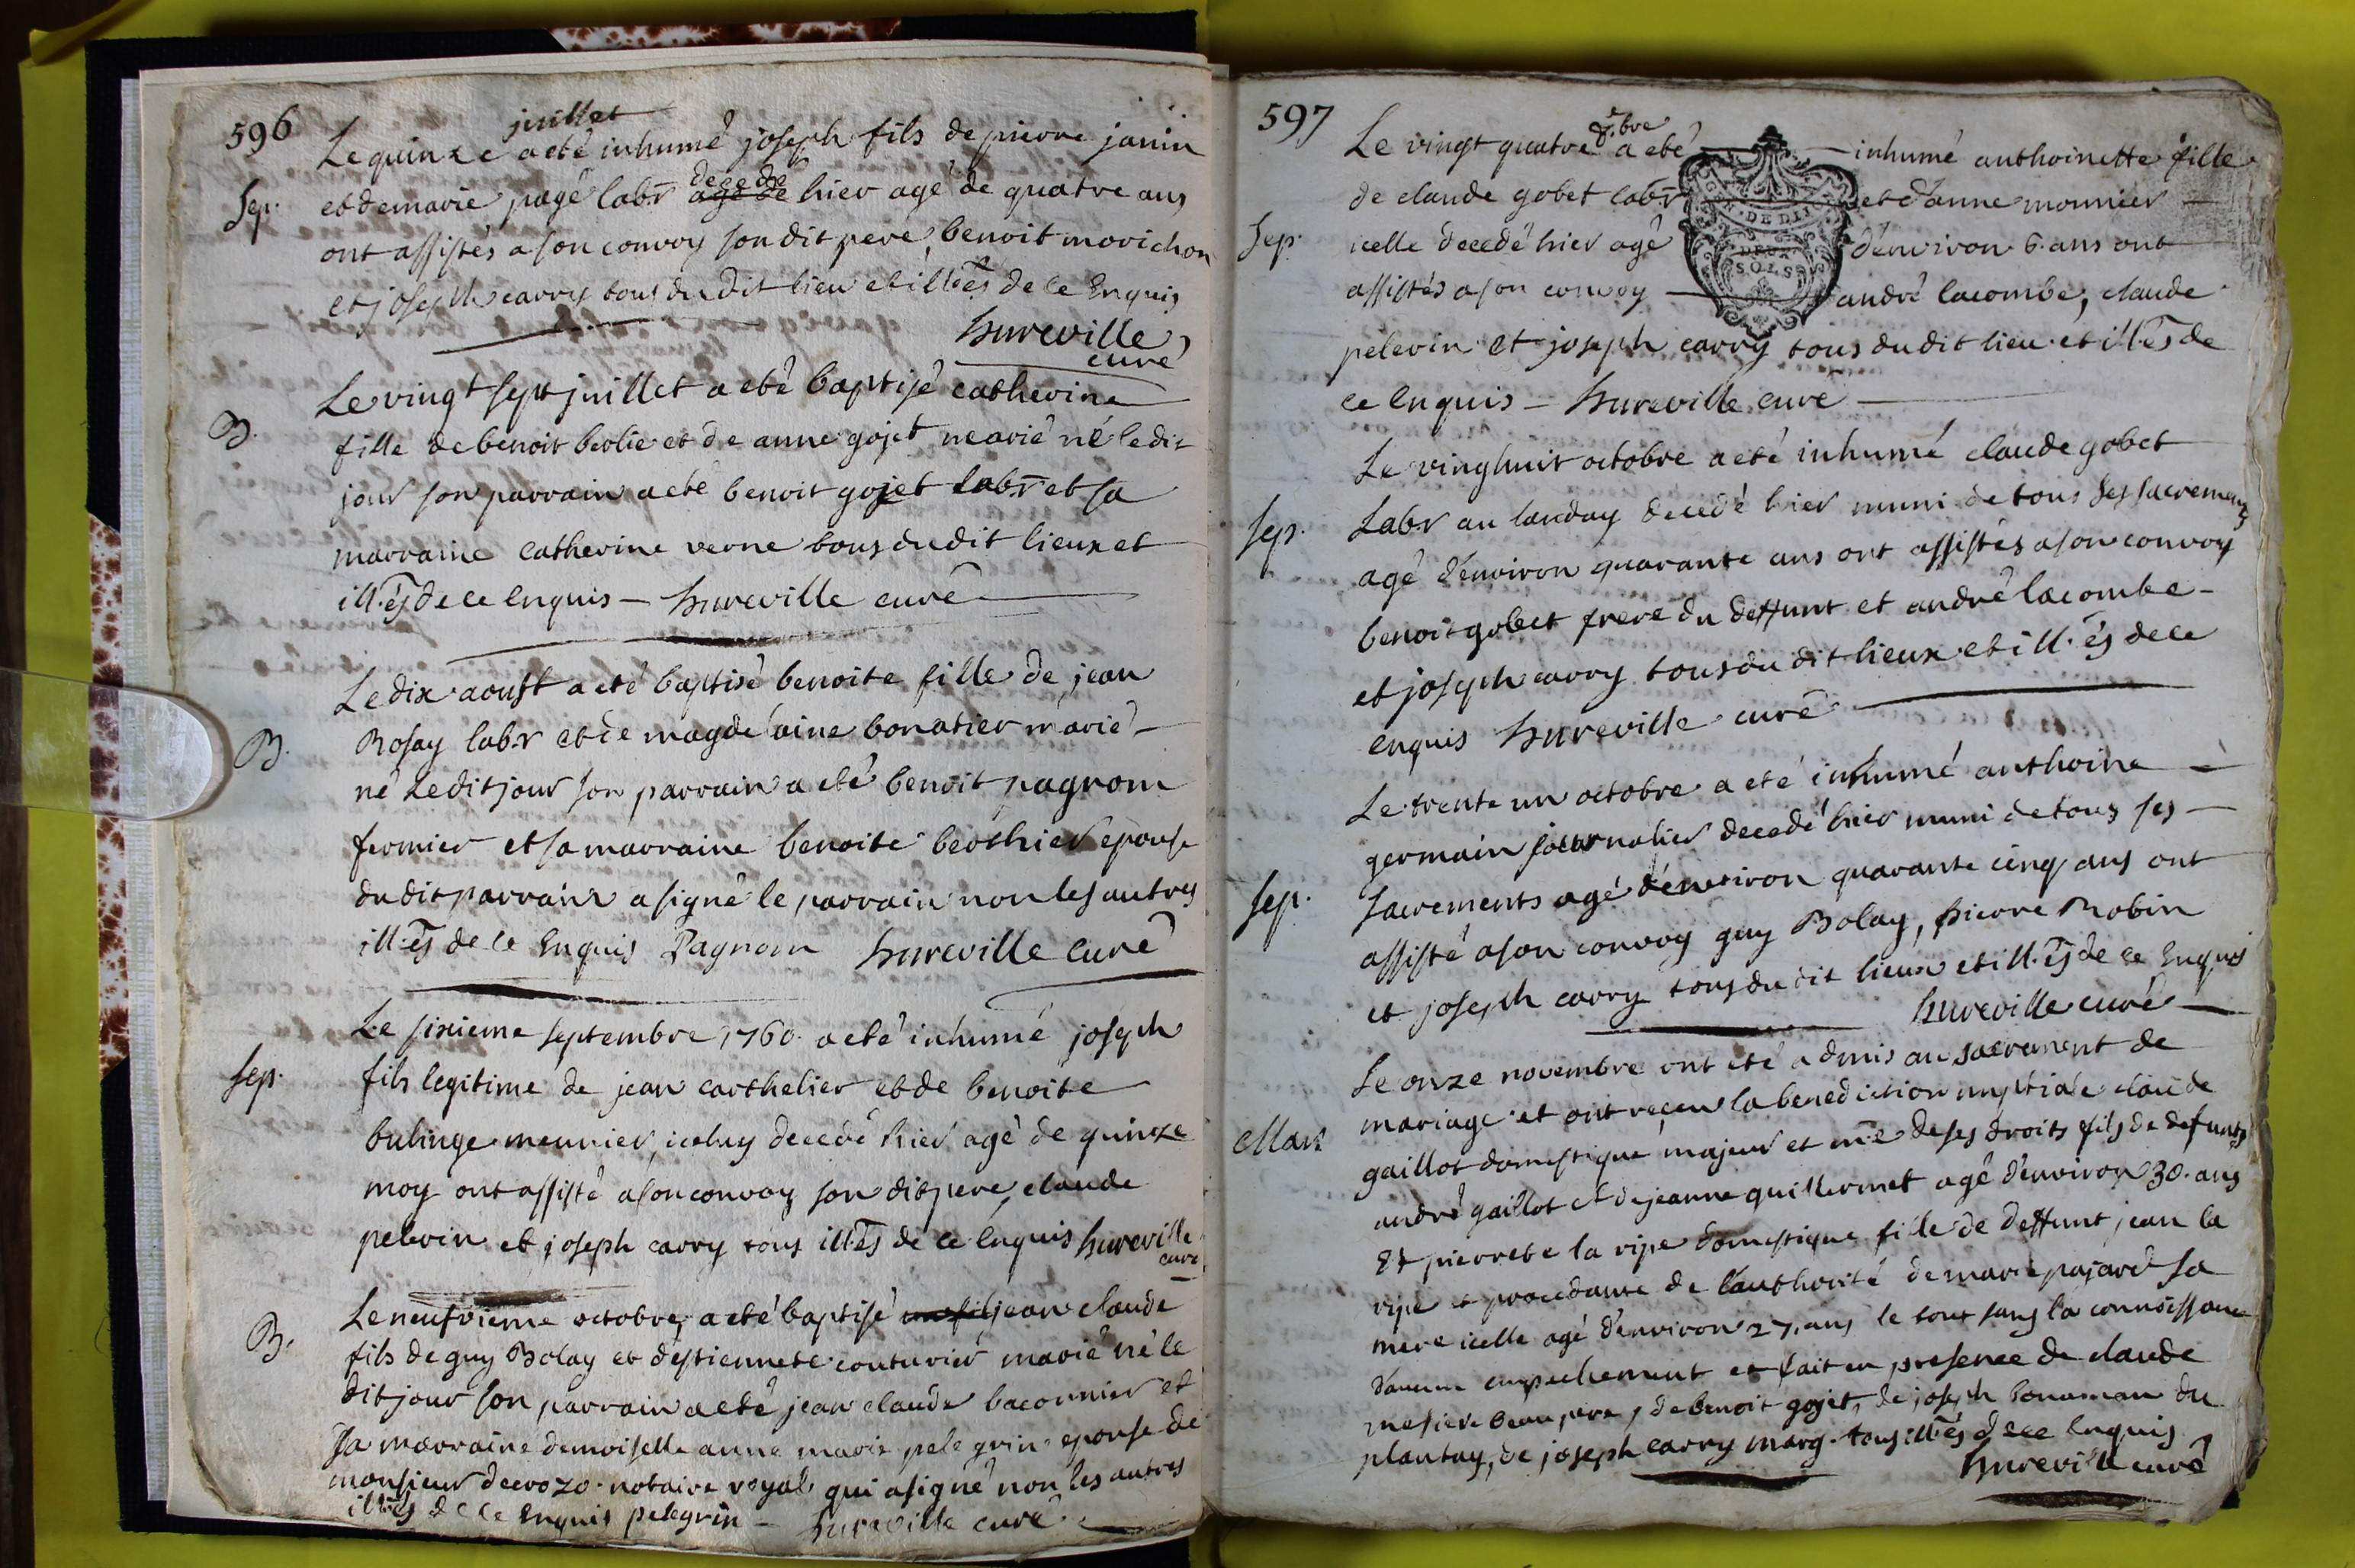 596
juillet
Le quinze a eté inhumé joseph fils de pierre janin
Sep. et de marie page labr decedé age de hier agé de quatre ans
ont assistés a son convoy son dit pere, benoit morichon
et joseph carry tous du dit lieu et ill.és de ce Enquis
hureville
curé
Le vingt sept juillet a eté baptisé catherine
B. fille de benoit berlie et de anne gojet marié né le dit
jour son parrain a eté benoit gojet labr et sa
marraine catherine verne tous du dit lieux et
ill.és de ce Enquis - hureville curé
Le dix aoust a eté baptisé benoite fille de jean
B. Rosay labr et de magdelaine bonatier marié
né Le dit jour son parrain a eté benoit pagnom
fermier et sa marraine benoite berthier epouse
du dit parrain a signé le parrain non les autres
ill.és de ce Enquis Pagnom hureville Curé
Le sixieme septembre 1760. a eté inhumé joseph
Sep. fils legitime de jean carthelier et de benoite
bulinge meunier, iceluy decedé hier agé de quinze
moy ont assisté a son convoy son dit pere, claude
pelerin et joseph carry tous ill.és de ce Enquis hureville
curé
Le neufvieme octobre, a eté baptisé jean claude
B. fils de guy Bolay et d'estiennete couturier marié né le
dit jour son parrain a eté jean claude baconnier et
sa marraine demoiselle anne marie pelegrin epouse de
monsieur decrozo notaire royal qui a signé non les autres
ill.és de ce Enquis pelegrin - hureville curé
597
8.bre
Le vingt quatre a eté inhumé anthoinette fille
de claude gobet labr et d'anne monnier
Sep. icelle decedé hier agé d'environ 6. ans ont
assistés a son convoy andré lacombe, claude
DEUX
SOLS
pelerin et joseph carry tous du dit lieu et ill.és de
ce Enquis - hureville curé
Le vinghuit octobre a eté inhumé claude gobet
Sep. Labr au landay decedé hier muni de tous ses sacrements
agé d'environ quarante ans ont assistés a son convoy
benoit gobet frere du deffunt et andré lacombe -
et joseph carry tous du dit lieux et ill.és de ce
enquis hureville curé
Le trente un octobre a eté inhumé anthoine
germain journalier decedé hier muni de tous ses
Sep. sacrements agé d'environ quarante cinq ans ont
assisté a son convoy guy Bolay, pierre Robin
et joseph carry tous du dit lieux et ill.és de ce Enquis
hureville curé
Le onze novembre ont eté admis au sacrement de
mariage et ont reçeu la benediction nuptiale claude
Mar. gaillot domestique majeur et m.e de ses droits fils de defunts
andré gaillot et de jeanne guillermet agé d'environ 30. ans
Et pierrete la ripe domestique fille de deffunt jean la
ripe et procedante de l'authorité de marie pajard sa
mere icelle agé d'environ 27. ans le tout sans la connoissance
d'aucun empechement et fait en presence de claude
beau pere, de benoit gojet, de joseph bonaman du
plantay, de joseph carry marg. tous ill.és de ce Enquis
hureville curé